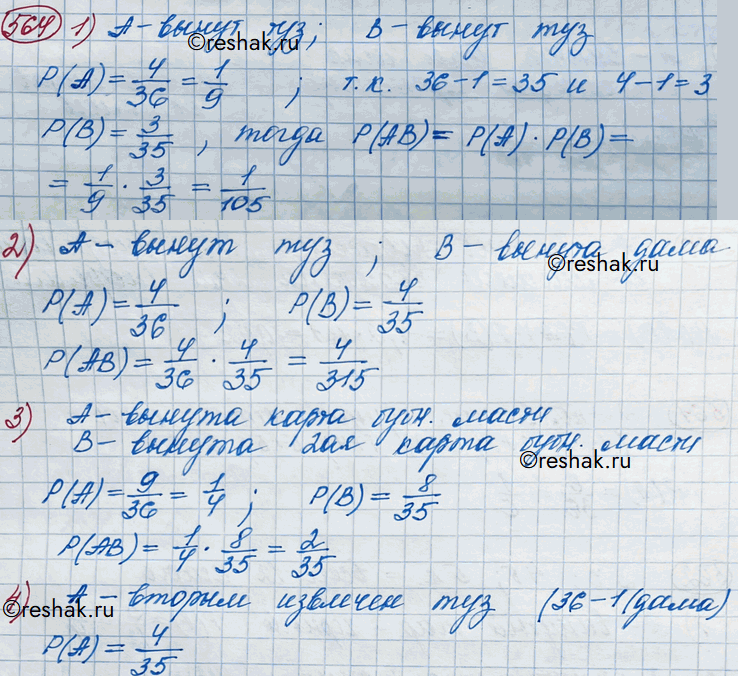 564 1) А - вынут туз; В - вынут туз
©reshak.ru
P(A) = 4/36 = 1/9 ; т.к. 36-1=35 и 4-1=3
P(B) = 3/35 , тогда P(AB) = P(A) · P(B) =
= 1/9 · 3/35 = 1/105
2) А - вынут туз ; В - вынута дама
©reshak.ru
P(A) = 4/36 ; P(B) = 4/35
P(AB) = 4/36 · 4/35 = 4/315
3) А - вынута карта бубн. масти
В - вынута 2ая карта бубн. масти
©reshak.ru
P(A) = 9/36 = 1/4 ; P(B) = 8/35
P(AB) = 1/4 · 8/35 = 2/35
4) А - вторым извлечен туз (36-1(дама)
©reshak.ru
P(A) = 4/35